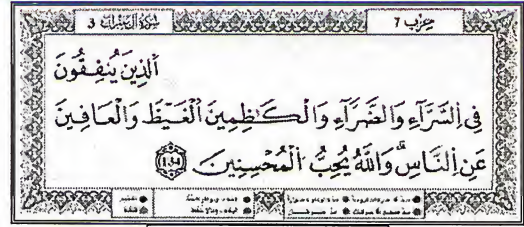 سورة آل عمران 3
حزب 7
الذِينَ يُنفِقُونَ
فِي اِلسَّرَّآءِ وَالضَّرَّآءِ وَالْكَٰظِمِينَ اَلْغَيْظَ وَالْعَافِينَ
عَنِ اِلنَّاسِۗ وَاللَّهُ يُحِبُّ اُلْمُحْسِنِينَ 134